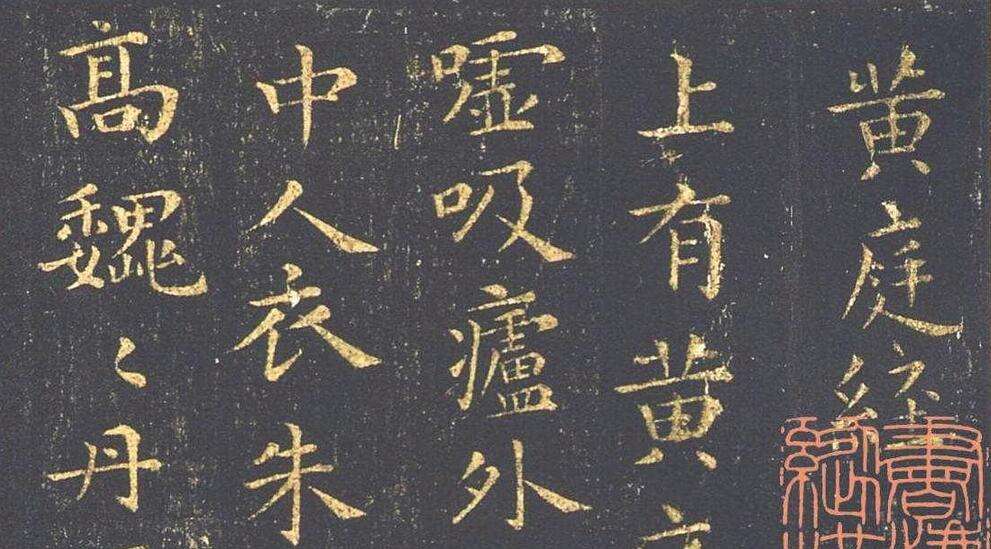 黄庭經
上有黄
嘘吸廬外
中人衣朱
髙巍〻丹